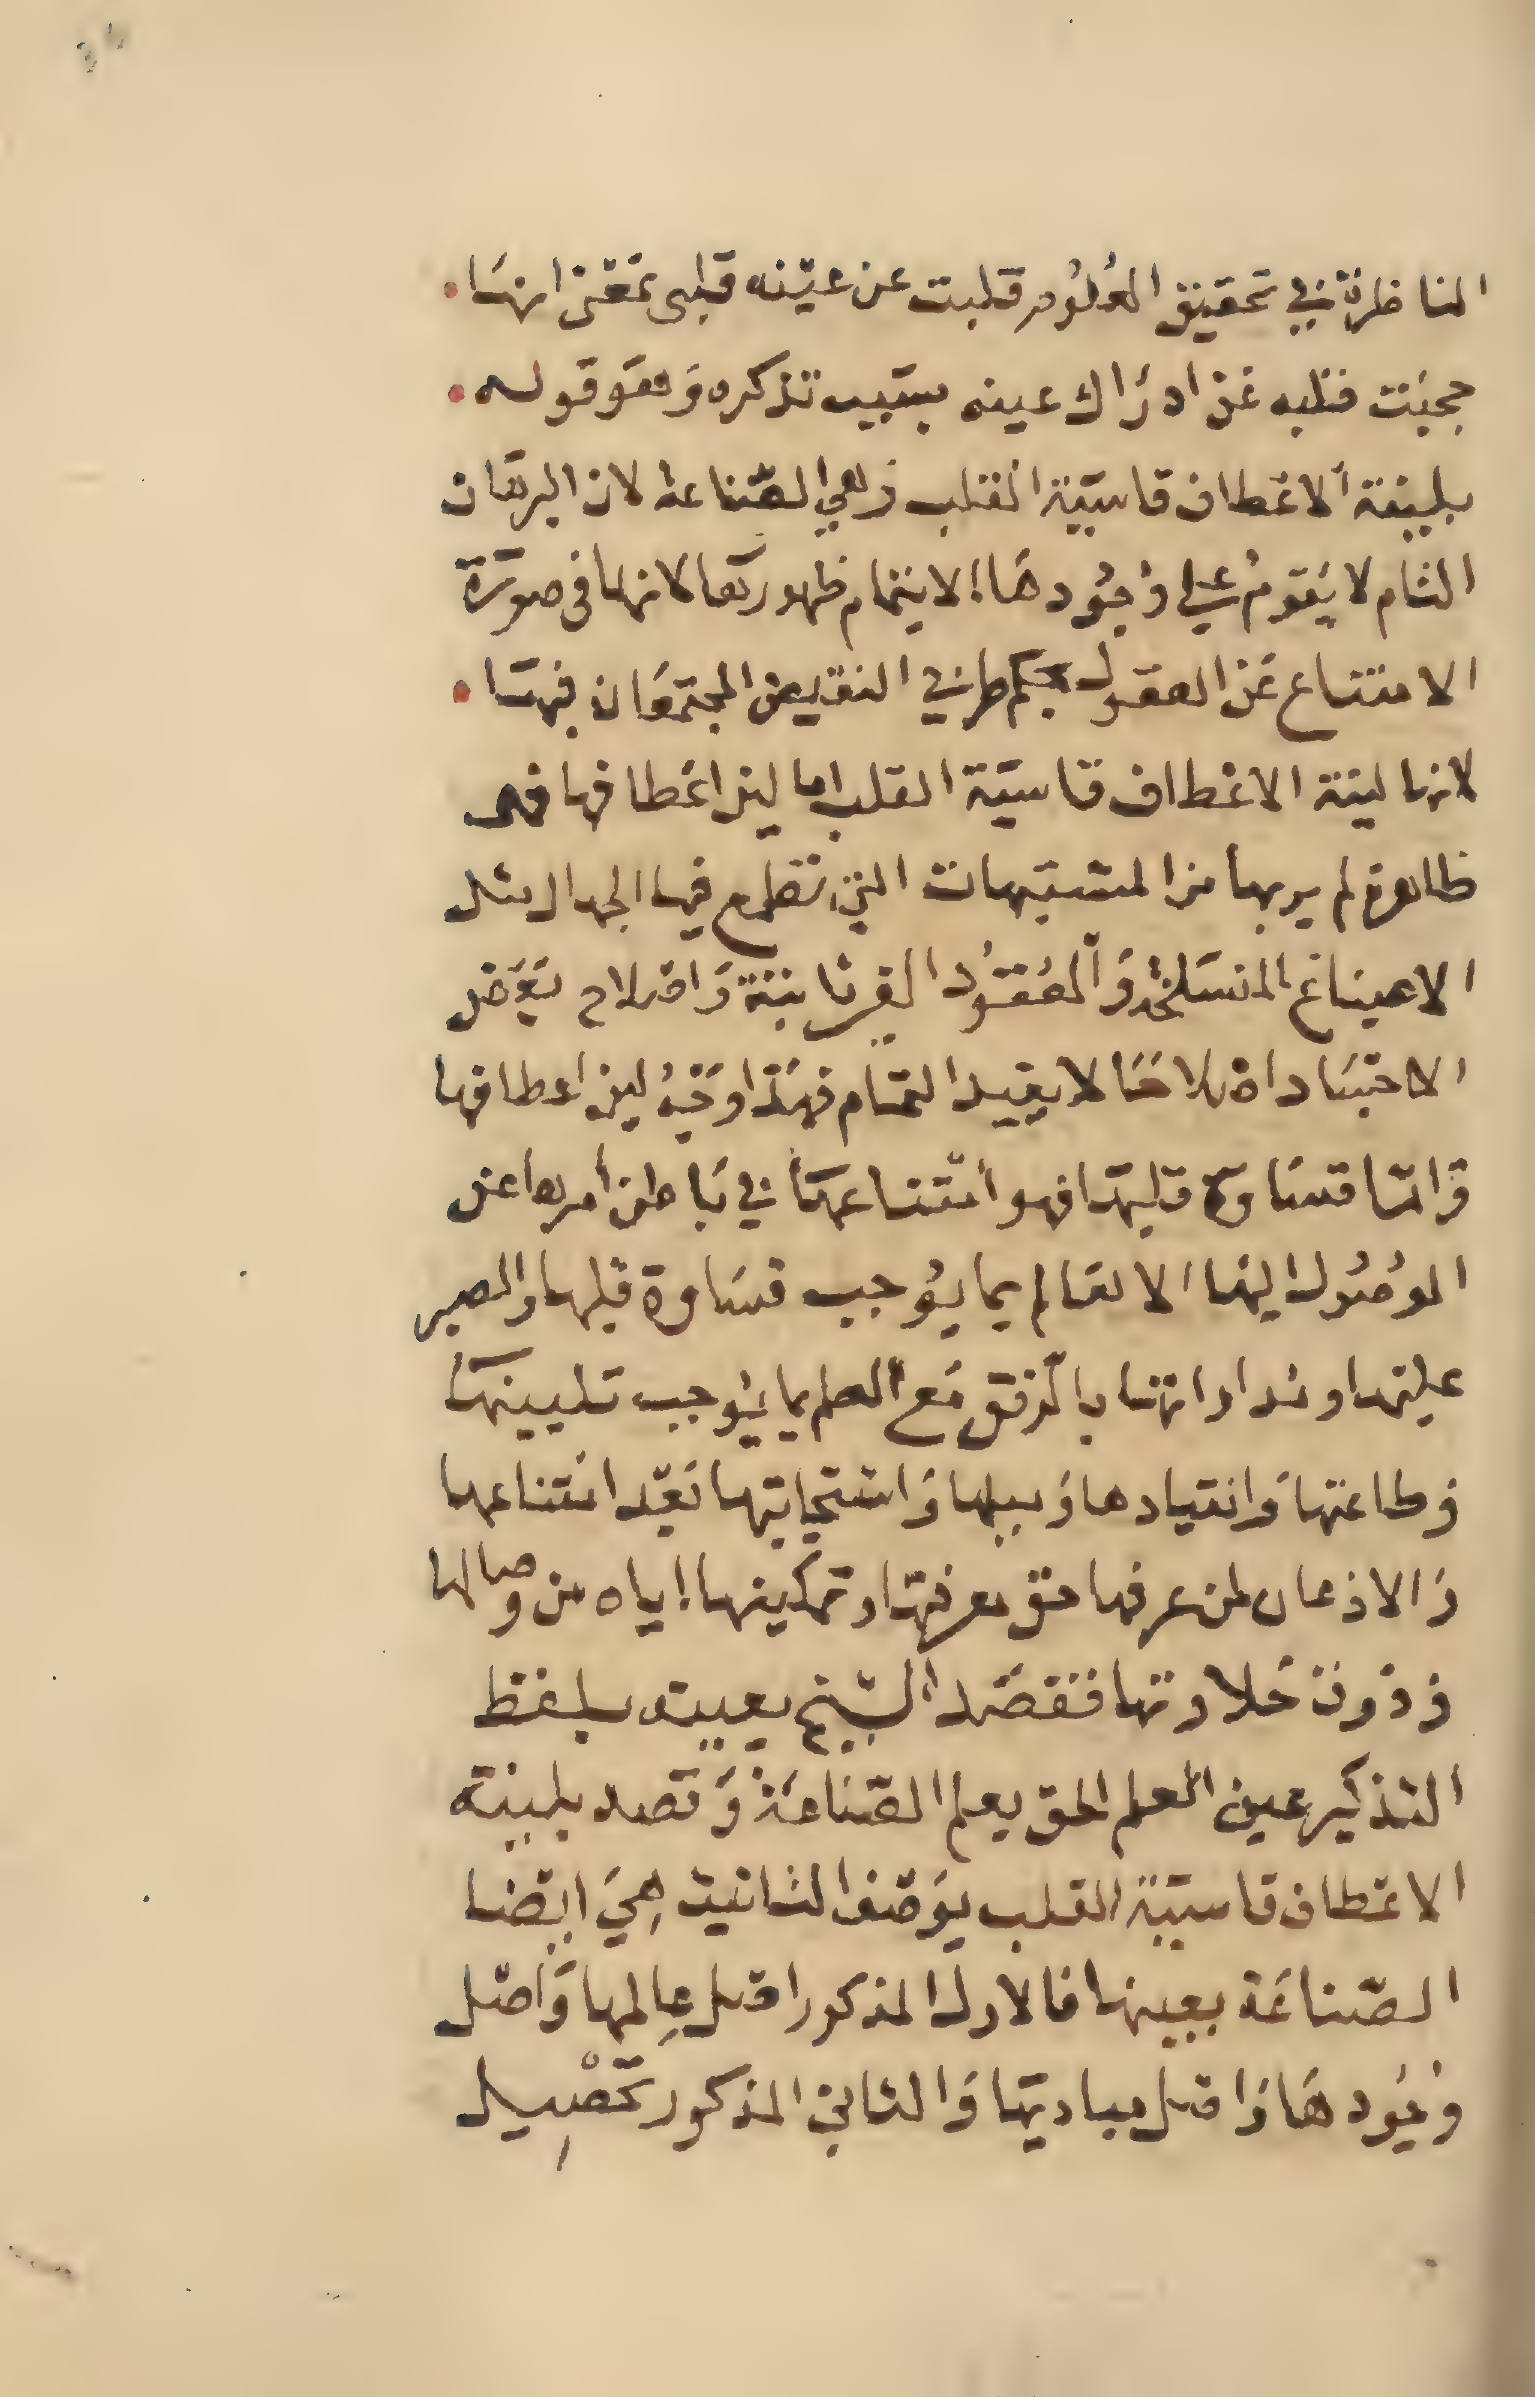 الناظرة في تحقيق العلوم قلبت عن عينه قلبى بمعنى انها
حجبت قلبه عن ادراك عينه بسبب تذكره وهو قوله
بلينة الاعطاف قاسية القلب وهي الصناعة لان البرهان
التام لا يقوم علي وجودها الا بتمام ظهورها لانها فى صورة
الامتناع عن العقول بحكم طرفي النقيض المجتمعان فيها
لانها لينة الاعطاف قاسية القلب اما لين اعطافها فهى
ظاهرة لم يربها من المشبهات التي تطمع فيها الجهال مثل
الاصباغ المنسلخة و العقود الفرنا بتته واملاح بعض
الاجساد املاحا لا يفيد التمام فهذا وجه لين اعطافها
واما قساوة قلبها فهو امتناعها في باطن امرها عن
الوصول اليها الا لعالم بما يوجب قساوة قلبها والصبر
عليها ومداراتها بالرفق مع العلم بما يوجب تليينها
وطاعتها وانقيادها وميلها واستجابتها بعد امتناعها
والاذعان لمن عرفها حق معرفتها وتمكينها اياه من وصالها
وذوق حلاوتها فقصد الشيخ بعينه بلفظ
التذكير عين العلم الحق بعلم الصناعة وقصد بلينة
الاعطاف قاسية القلب بوصف التانيث هي ايضا
الصناعة بعينها فالاول المذكور اصل علمها واصل
وجودها واصل مباديها والثاني المذكور تحصيل